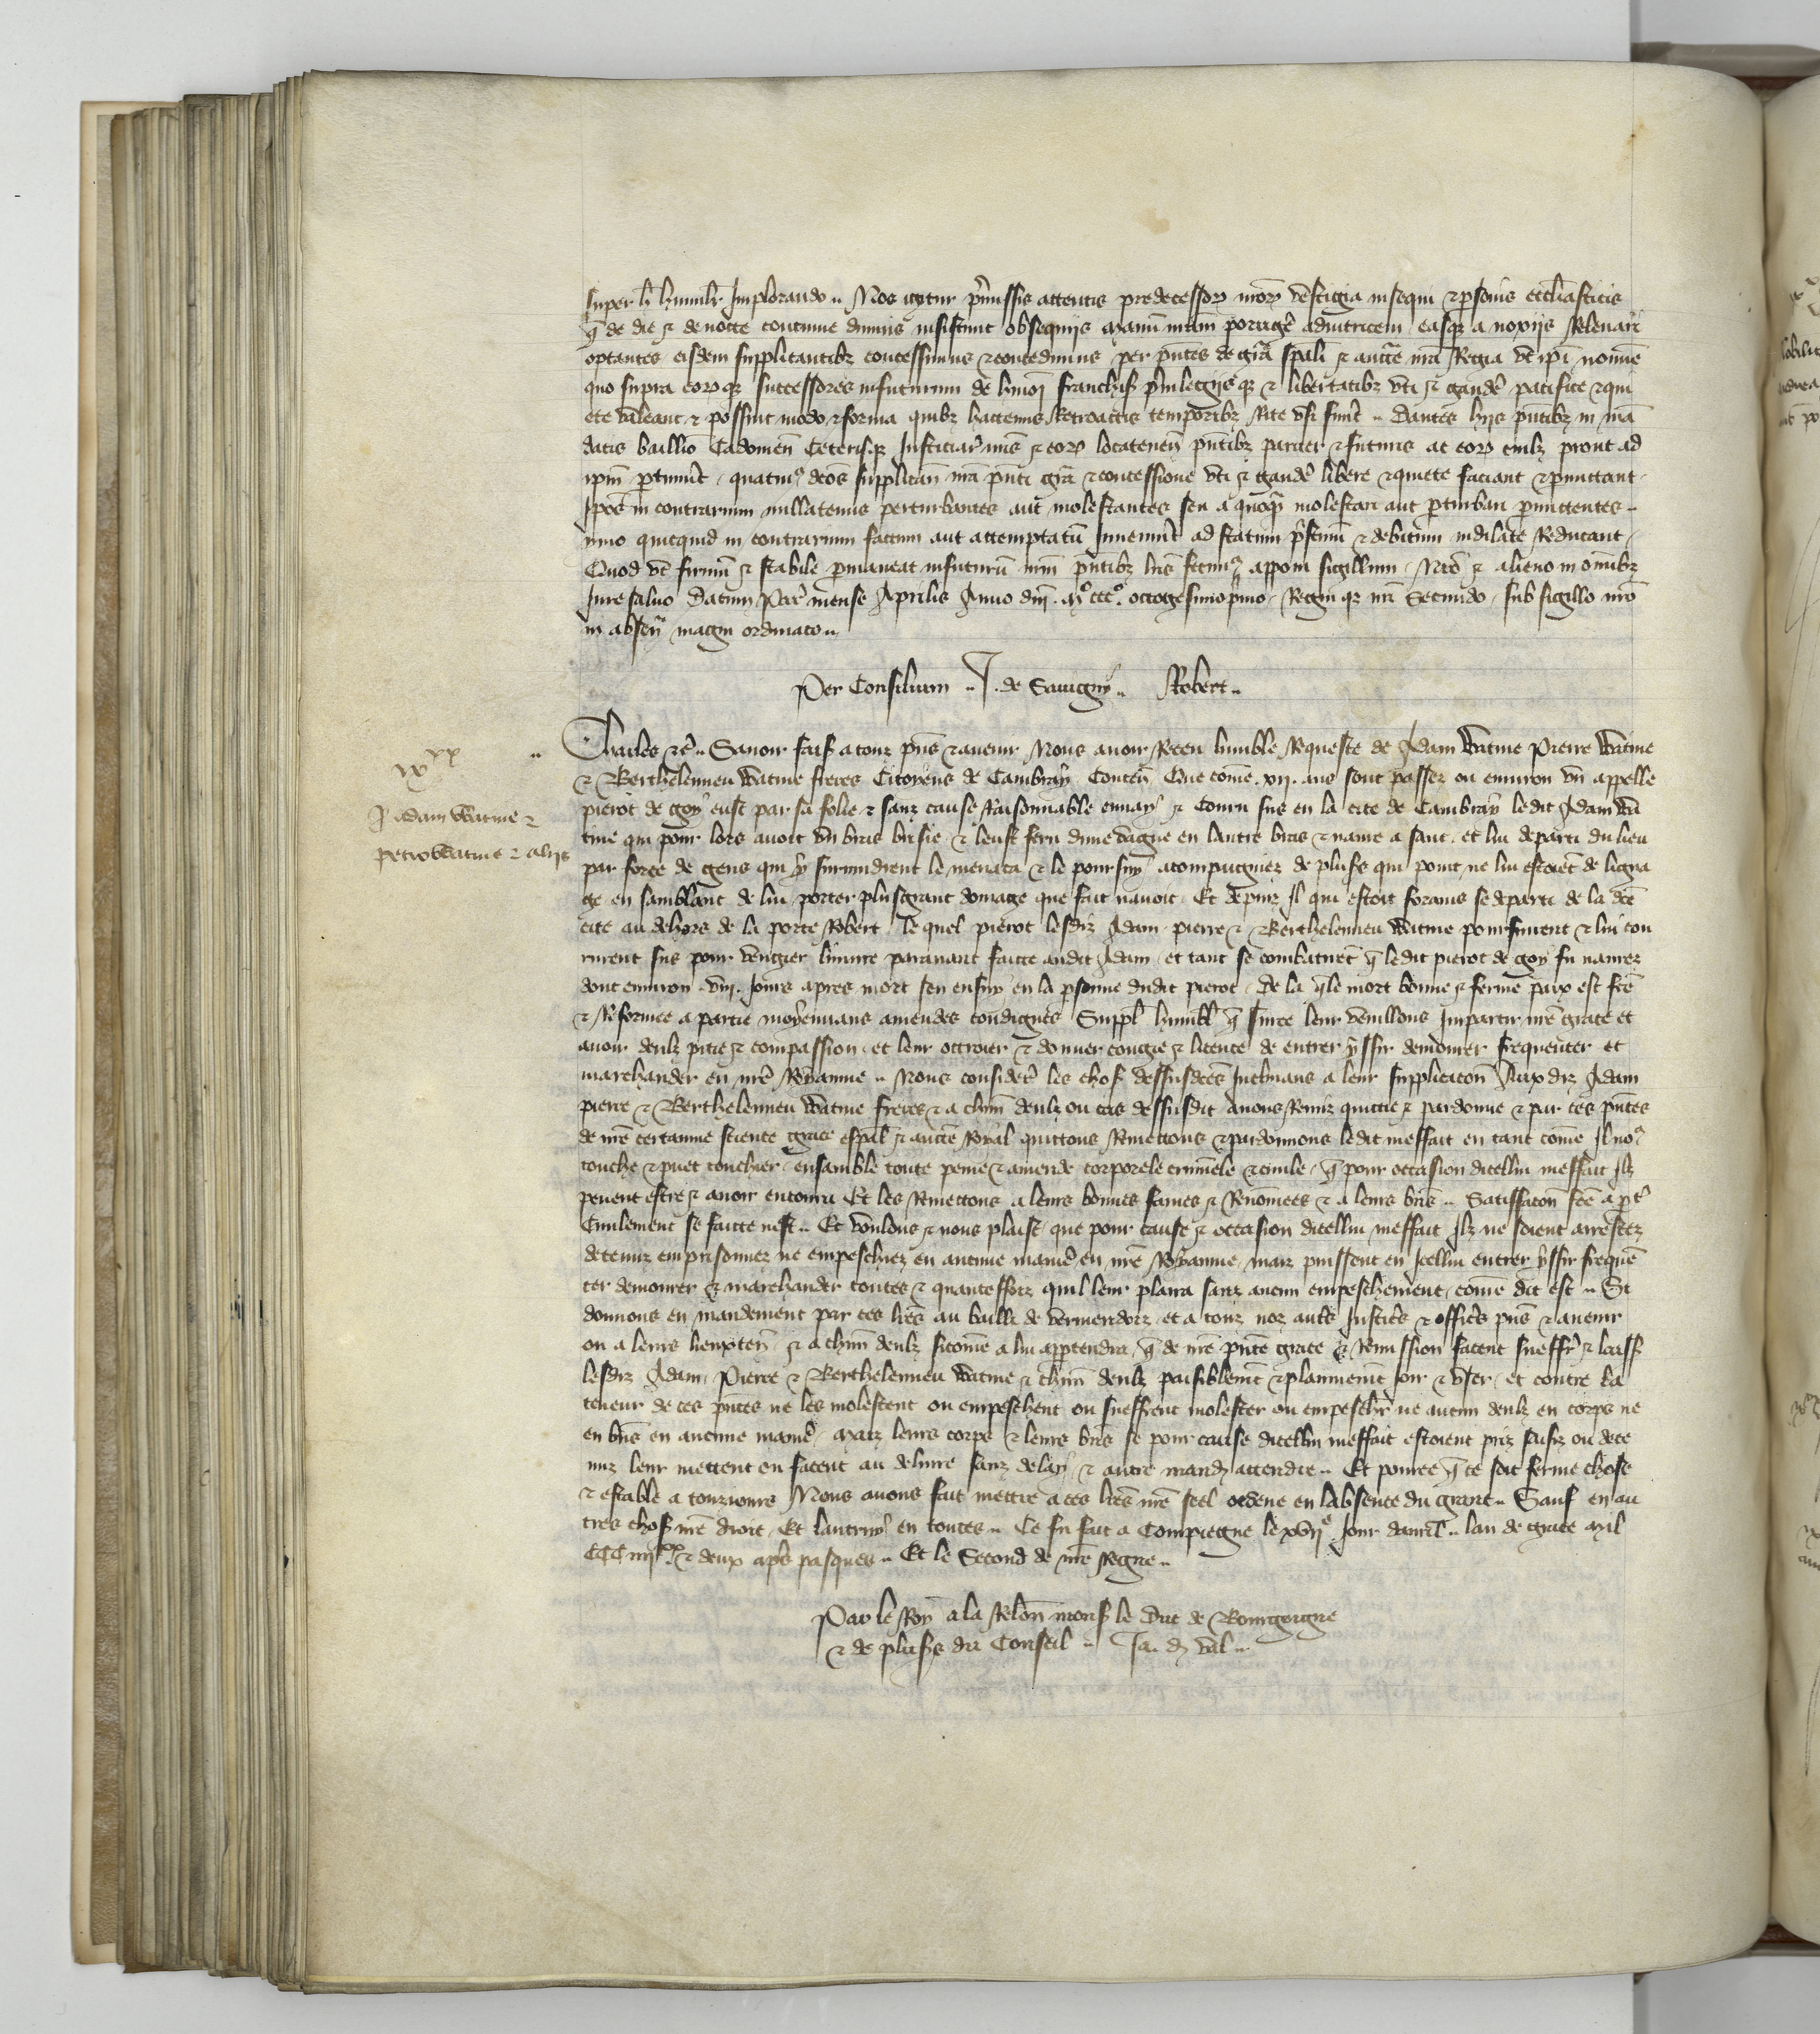 super hoc humilit̃ Implorando .. Nos igitur p̃missis attentis predecessorꝝ nr̃orꝝ vestigia insequi ⁊ ꝑsonis eccl̃iasticis
q̃ de die ⁊ de nocte continue diuinis insistunt obsequijs manũ nr̃am porrigẽ adiutricem easqꝫ a noxijs Releuari
optantes eisdem supplicantibꝫ concessimus ⁊ concedimus per p̃ntes de gr̃a sp̃ali ⁊ aucte nr̃a Regia vt ip̃i nomĩe
quo supra eorꝝqꝫ successores infuturum de hmõi franchis̃ p̃uilegijsqꝫ ⁊ libertatibꝫ vti ⁊ gaudẽ pacifice ⁊ qui
ete valeant ⁊ possint modo ⁊ forma quibꝫ hactenus Retroactis temporibꝫ Rite vsi sunt̃ .. Dantes hijs p̃ntibꝫ in mã
datis bailliuo Cadomeñ Ceterisqꝫ Justiciar̃ nr̃is ⁊ eorꝝ locateneñ p̃ntibꝫ pariter ⁊ futuris ac eorꝝ cuilꝫ prout ad
ip̃m ꝑtinuit̃ quatinꝰ dc̃os supplicañ nr̃a p̃nti gr̃a ⁊ concessione vti ⁊ gaudẽ libere ⁊ quiete faciant ⁊ ꝑmittant
Ip̃os in contrarium nullatenus perturbantes aut molestantes seu a quoqꝫ molestari aut ꝑturbari ꝑmittentes ..
ymo quicquid in contrarium factum aut attemptatũ Inuenerit̃ ad statum p̃stinũ ⁊ debitum indilate Reducant
Quod vt firmũ ⁊ stabile ꝑmaneat infuturũ nr̃m p̃ntibꝫ lr̃is fecimꝰ apponi sigillum . Nr̃o ⁊ alieno in om̃ibꝫ
Jure saluo Datum Par̃ mense Aprilis Anno dñi . mº cccº . octogesimoprimo . Regniqꝫ nr̃i Secundo . sub sigillo nr̃o
in abseñ magni ordinato ..
Per Consilium .. J . de Sauigny .. Robert ..
Charles ⁊c̃ .. Sauoir fais̃ a touz p̃ns ⁊ auenir Nous auoir Receu humble Requeste de Adam Watine Pierre Watine
⁊ Berthelemieu Watine freres Citoyens de Cambray Conteñ Que cõme . xij . ans sont passez ou enuiron vn appelle
pierot de goy eust par sa folie ⁊ sanz cause Raisonnable enuay ⁊ couru sus en la cite de Cambray le dit Adam Wa
tine qui pour lors auoit vn bras brisie ⁊ leust feru dune dague en lautre bras ⁊ naure a sanc . et lui departi du lieu
par force de gens qui y suruindrent le menaca ⁊ le poursuy acompaignez de plus̃s qui point ne lui estoiẽt de ligna
ge en samblant de lui porter plusgrant domage que fait nauoit . Et depuiz Il qui estoit forains se departi de la dc̃e
cite au dehors de la porte Robert . le quel pierot lesdiz Adam . pierre ⁊ Berthelemieu Watine poursuirent ⁊ lui cou
rurent sus pour vengier liniure parauant faicte audit Adam . et tant se combatirẽt q̃ le dit pierot de goy fu naurez
dont enuiron . viij . Jours apres mort sen ensuy en la ꝑsonne dudit pierot . De la q̃le mort bonne ⁊ ferme paix est fc̃e
⁊ Reformee a partie moyennans amendes condignes Suppl̃ humbl̃ q̃ sur ce leur vueillons Impartir nr̃e grace et
auoir deulx pitie ⁊ compassion . et leur octroier ⁊ donner congie ⁊ licence de entrer yssir demourer frequenter et
marchander en nr̃e Royaume .. Nous considerẽ les chos̃ dessusdc̃es Inclinans a leur supplicacõn Aux diz Adam
pierre ⁊ Berthelemieu Watine freres ⁊ a chũn deulx ou cas dessusdit auons Remiz quittie ⁊ pardonne ⁊ par ces p̃ntes
de nr̃e certainne science grace esp̃al ⁊ aucte Royal quittons Remettons ⁊ pardonnons ledit meffait en tant cõme Il noꝰ
touche ⁊ puet touchier . ensamble toute peine ⁊ amende corporele criminele ⁊ ciuile . q̃ pour occasion dicellui meffait Ilz
peuent estre ⁊ auoir encouru Et les Remettons a leurs bonnes fames ⁊ Renõmees ⁊ a leurs bñs .. Satisfaccõn fc̃e a ꝑt̃
Ciuilement se faicte nest .. Et voulons ⁊ nous plaist que pour cause ⁊ occasion dicellui meffait Ilz ne soient arrestez
detenuz emprisonnez ne empeschiez en aucune maniẽ en nr̃e Royaume . maiz puissent en Icellui entrer yssir frequẽ
ter demourer ⁊ marchander toutes ⁊ quantesfoiz quil leur plaira sanz aucun empeschement . cõme dit est .. Si
donnons en mandement par ces lr̃es au bailli de vermendoiz . et a touz noz autr̃s Justicĩs ⁊ officĩs p̃ns ⁊ auenir
ou a leurs lieuxteñ ⁊ a chũn deulx sicõme a lui apꝑtendra . q̃ de nr̃e p̃nte grace ⁊ Remission facent sueffr̃ ⁊ laiss̃
lesdiz Adam . Pierre ⁊ Berthelemieu Watine ⁊ chũn deulx paisiblemẽt ⁊ plainnemẽt joir ⁊ vser . et contre la
teneur de ces p̃ntes ne les molestent ou empeschent ou sueffrent molester ou empeschr̃ ne aucun deulx en corps ne
en bñs en aucune maniẽ . Maiz leurs corps ⁊ leurs bñs se pour cause dicellui meffait estoient priz saisiz ou dete
nuz leur mettent ou facent au deliure sanz delay ⁊ autre mandꝫ attendre .. Et pource q̃ ce soit ferme chose
⁊ estable a touziours Nous auons fait mettre a ces lr̃es nr̃e seel ordene en labsence du grant .. Sauf en au
tres chos̃ nr̃e droit . Et lautruy en toutes .. Ce fu fait a Compiegne le xvijᵉ Jour dauril .. lan de grace mil
CCC iiijˣˣ . ⁊ deux apr̃s pasques .. Et le Second de nr̃e Regne ..
Par le Roy a la Relõn mons̃ le duc de Bourgoigne
⁊ de plus̃s du Conseil .. Ja . dꝫ val ..
P̲ adam Watine ⁊
petro Watine ⁊ alijs